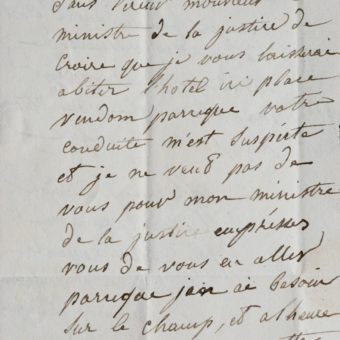 ministre de la justice de
croire que je vous laisserai
abiter l'hotel ici place
vendom parceque votre
conduite m'est suspecte
et je ne veux pas de
vous pour mon ministre
de la justice empréssez
vous de vous en aller
parceque jan ai besoin
sur le champ, et alheure